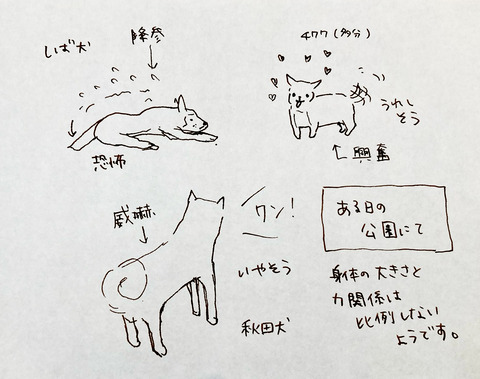 しば犬
降参
恐怖
チワワ(多分)
うれし
そう
興奮
威嚇
ワン!
いやそう
秋田犬
ある日の
公園にて
身体の大きさと
力関係は
比例しない
ようです。